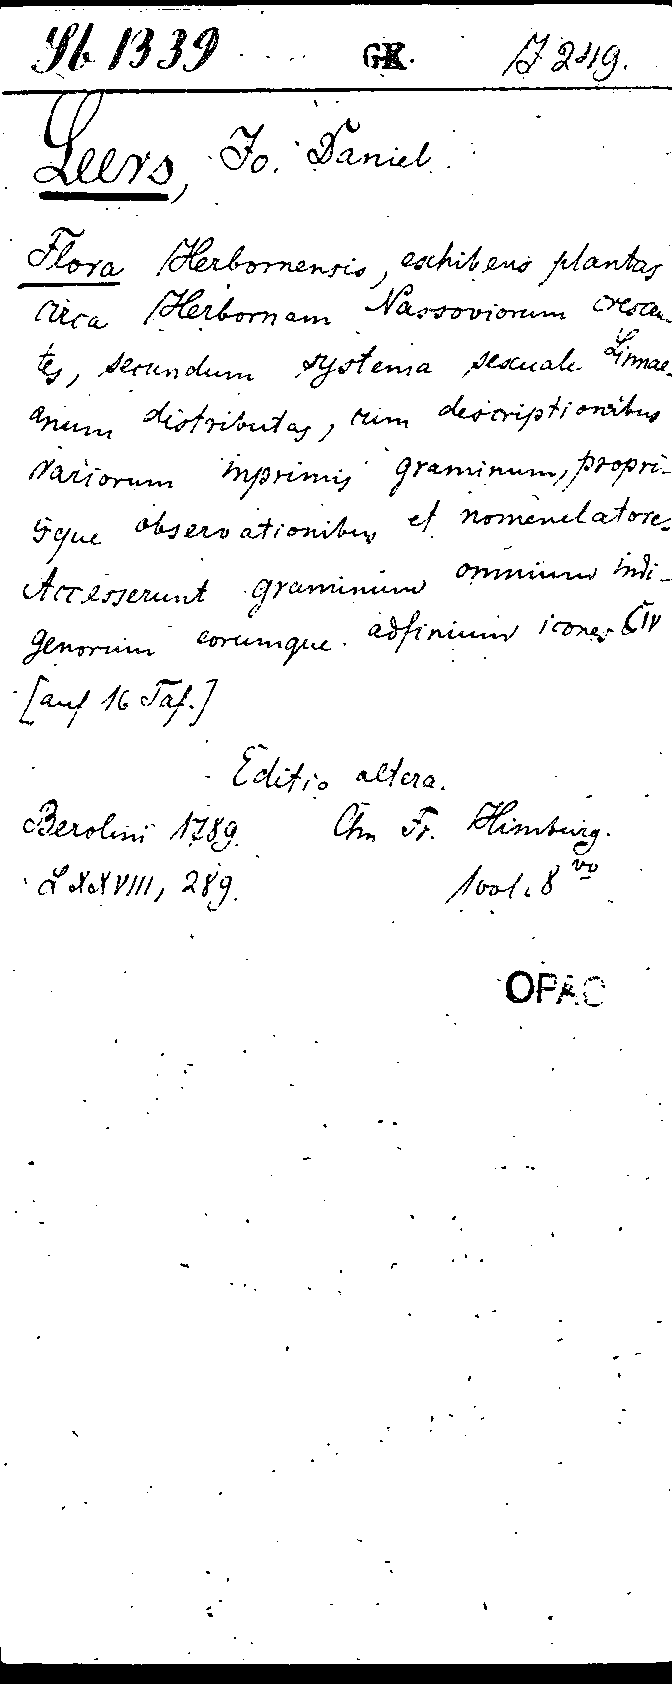 Sb 1339 GK. J 249.
Leers, Jo. Daniel
Flora Herbornensis, exhibens plantas
circa Herbornam Nassoviorum crescen-
tes, secundum systema sexuale Linnae-
anum distributas, cum descriptionibus
rariorum inprimis graminum, propri-
isque observationibus et nomenclatore.
Accesserunt graminum omnium indi-
genorum eorumque adfinium icones CIV
[auf 16 Taf.]
Editio altera.
Berolini 1789. Chn Fr. Himburg.
LXXVIII, 289. 1 vol. 8vo
OPAC